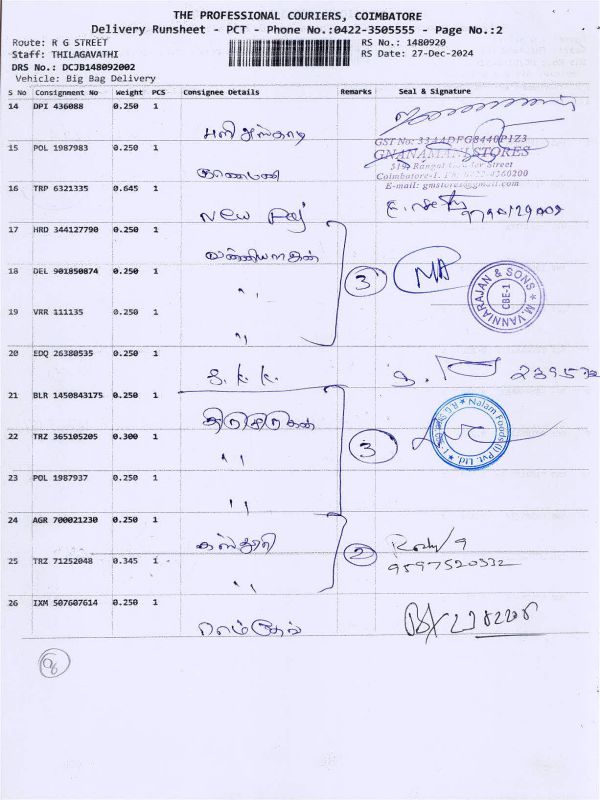 THE PROFESSIONAL COURIERS, COIMBATORE
Delivery Runsheet - PCT - Phone No.:0422-3505555 - Page No.:2
Route: R G STREET
RS No.: 1480920
Staff: THILAGAVATHI
RS Date: 27-Dec-2024
DRS No.: DCJB148092002
Vehicle: Big Bag Delivery
S No Consignment No Weight PCS Consignee Details Remarks Seal & Signature
14 DPI 436088 0.250 1
15 POL 1987983 0.250 1
GST No: 33AADFG8440P1Z3
GNANAMANI STORES
Coimbatore-1. Ph: 0422-4360200
E-mail: gmstores@gmail.com
16 TRP 6321335 0.645 1
New
17 HRD 344127790 0.250 1
18 DEL 901850874 0.250 1
" 3 MA
M. VANNIARAJAN & SONS
CBE-1
19 VRR 111135 0.250 1
"
20 EDQ 26380535 0.250 1
S. K. K.
21 BLR 1450843175 0.250 1
Nalam Foods (I) Pvt. Ltd.
22 TRZ 365105205 0.300 1
" 3
23 POL 1987937 0.250 1
"
24 AGR 700021230 0.250 1
கஸ்தூரி 2
25 TRZ 71252048 0.345 1
" 9597520332
26 IXM 507607614 0.250 1
ராம்தேவ்